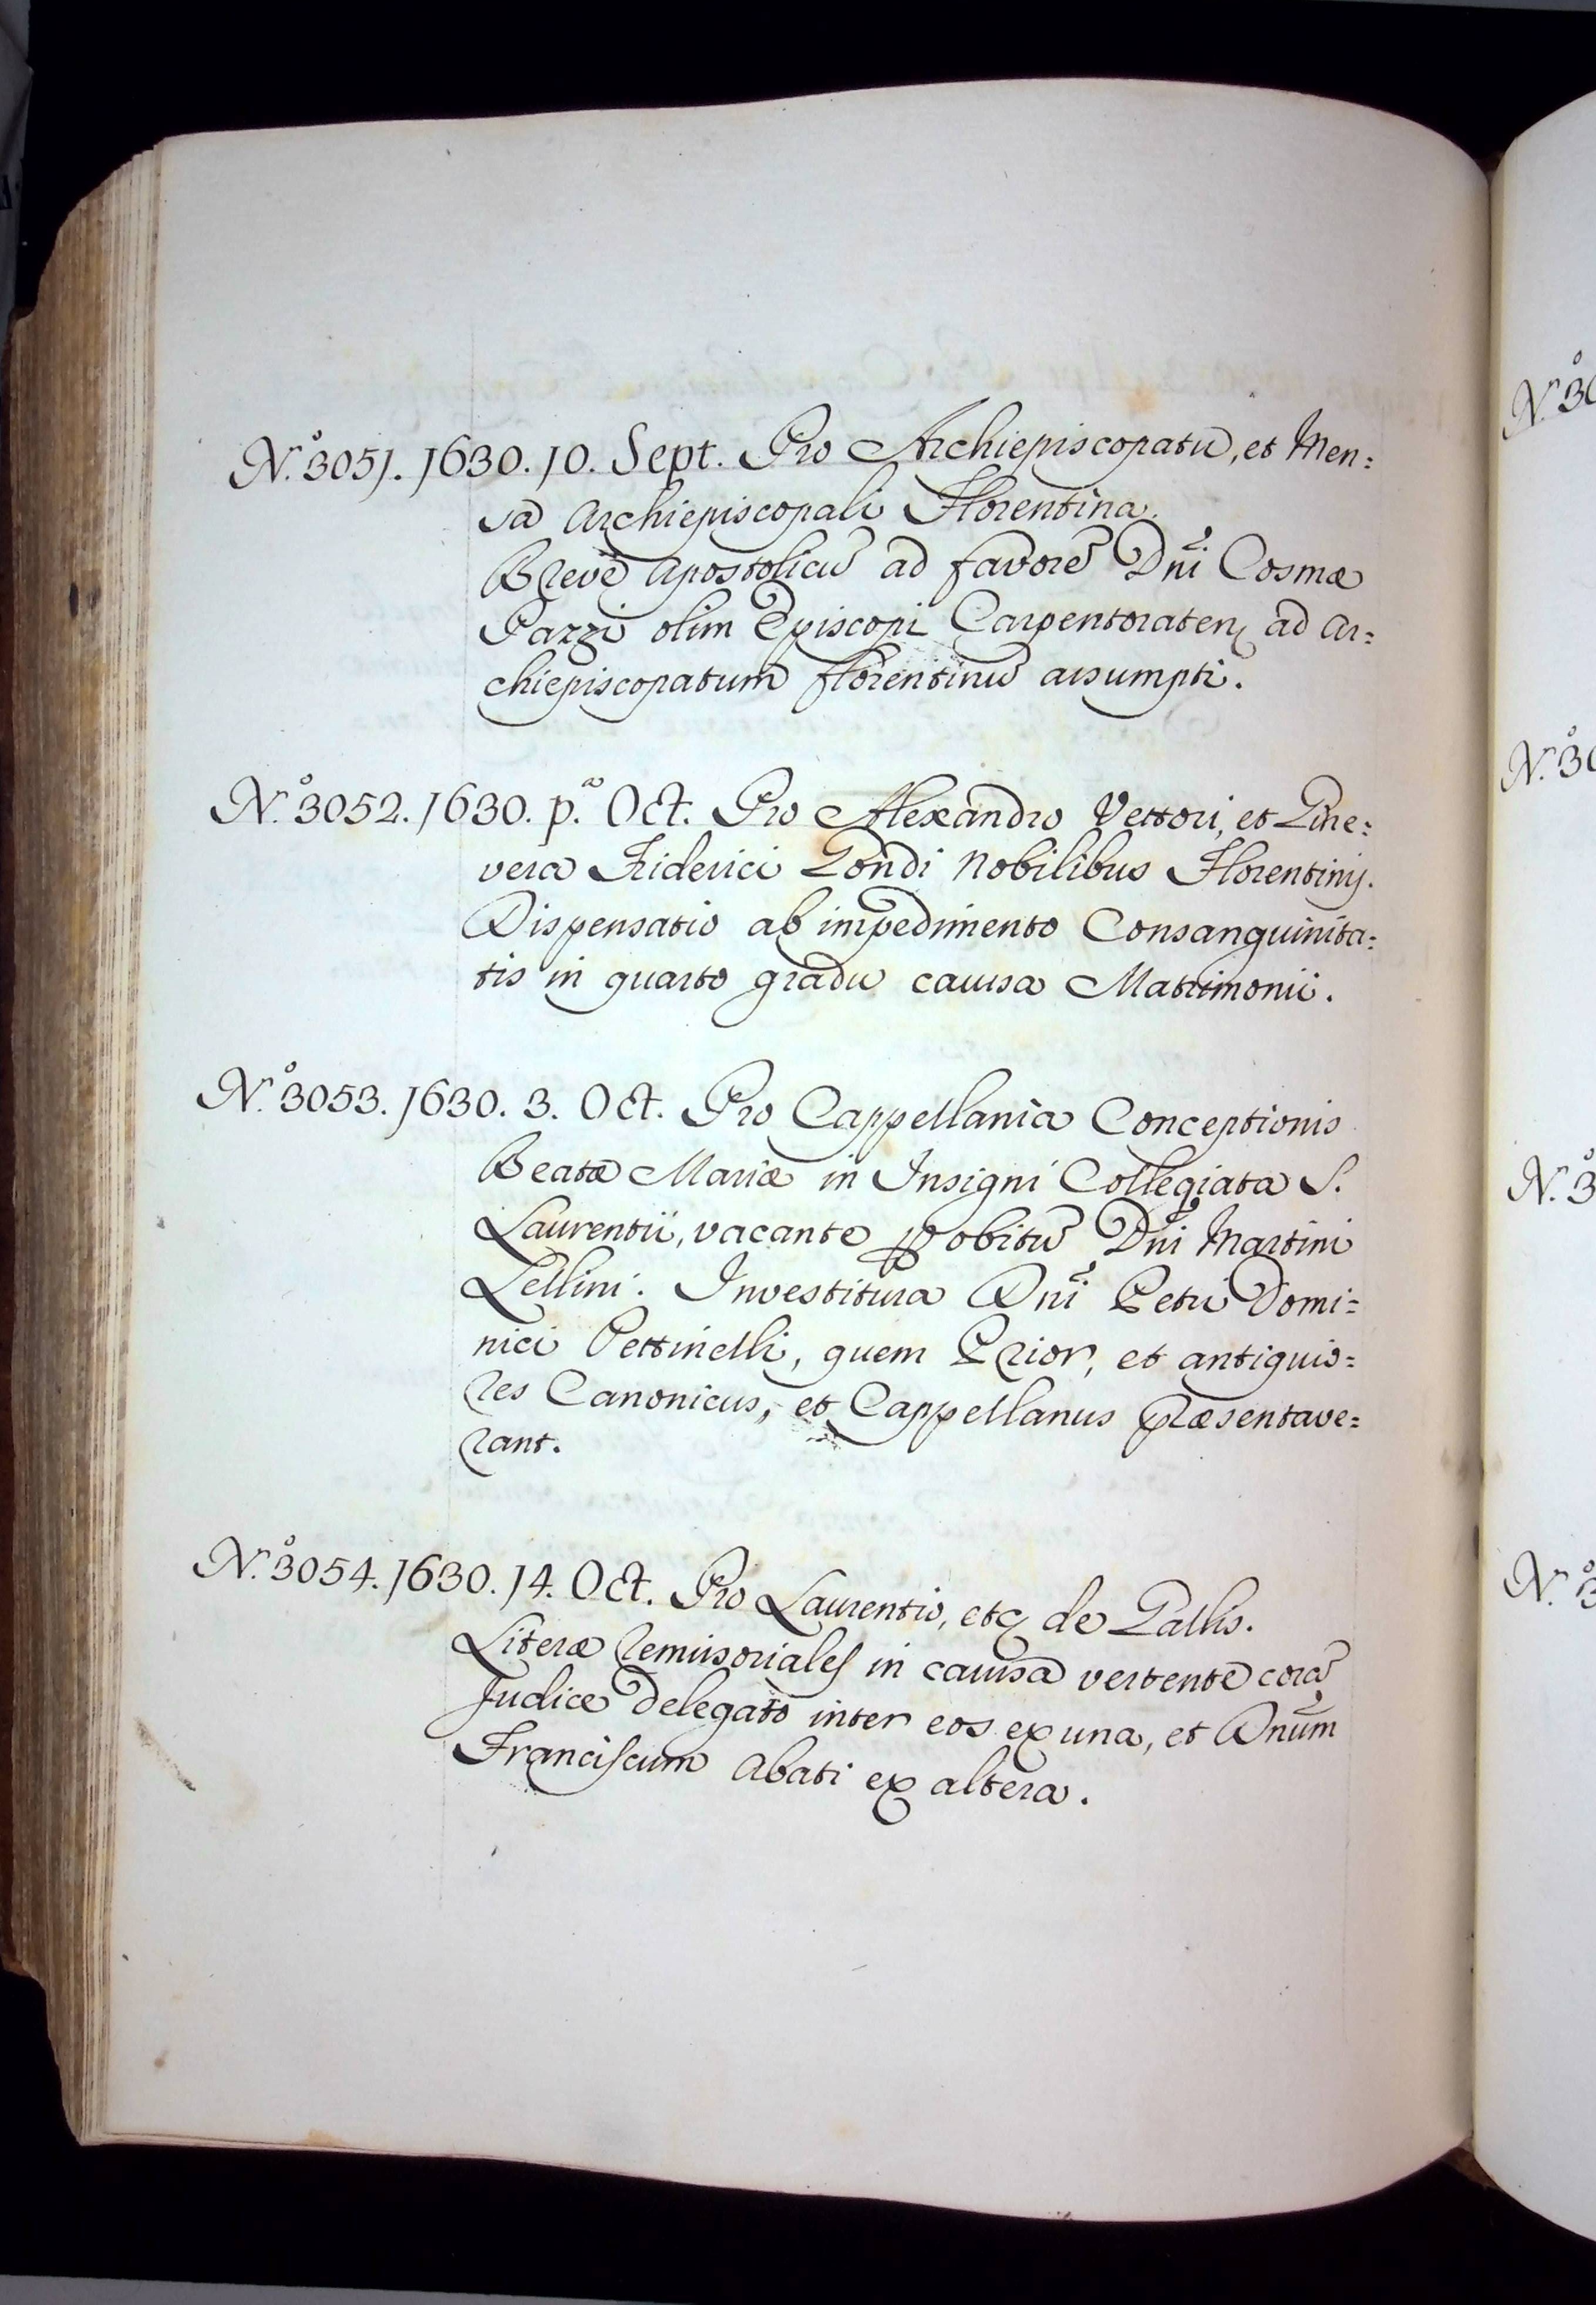 N.º 3051. 1630. 10. Sept. Pro Archiepiscopatu, et Men=
sa Archiepiscopali Florentina.
Breve Apostolicū ad favorē Dñi Cosmæ
Pazzi olim Episcopi Carpentoraten ad Ar=
chiepiscopatum florentinū assumpti.
N.º 3052. 1630. p.ª Oct. Pro Alexandro Vettori, et Gine=
vera Friderici Gondi Nobilibus Florentinis.
Dispensatio ab impedimento Consanguinita=
tis in quarto gradu caussa Matrimonii.
N.º 3053. 1630. 3. Oct. Pro Cappellania Conceptionis
Beatæ Mariæ in Insigni Collegiata S.
Laurentii, vacante p obitū Dñi Martini
Lellini. Investitura Dñi Petri Domi=
nici Pettinelli, quem Prior, et antiquio=
res Canonicus, et Cappellanus præsentave=
rant.
N.º 3054. 1630. 14. Oct. Pro Laurentio, etc de Gallis.
Literæ remissoriales in caussa vertente corā
Judice Delegato inter eos ex una, et Dñum
Franciscum Abati ex altera.
N.º 30
N.º 30
N.º 3
N.º 3